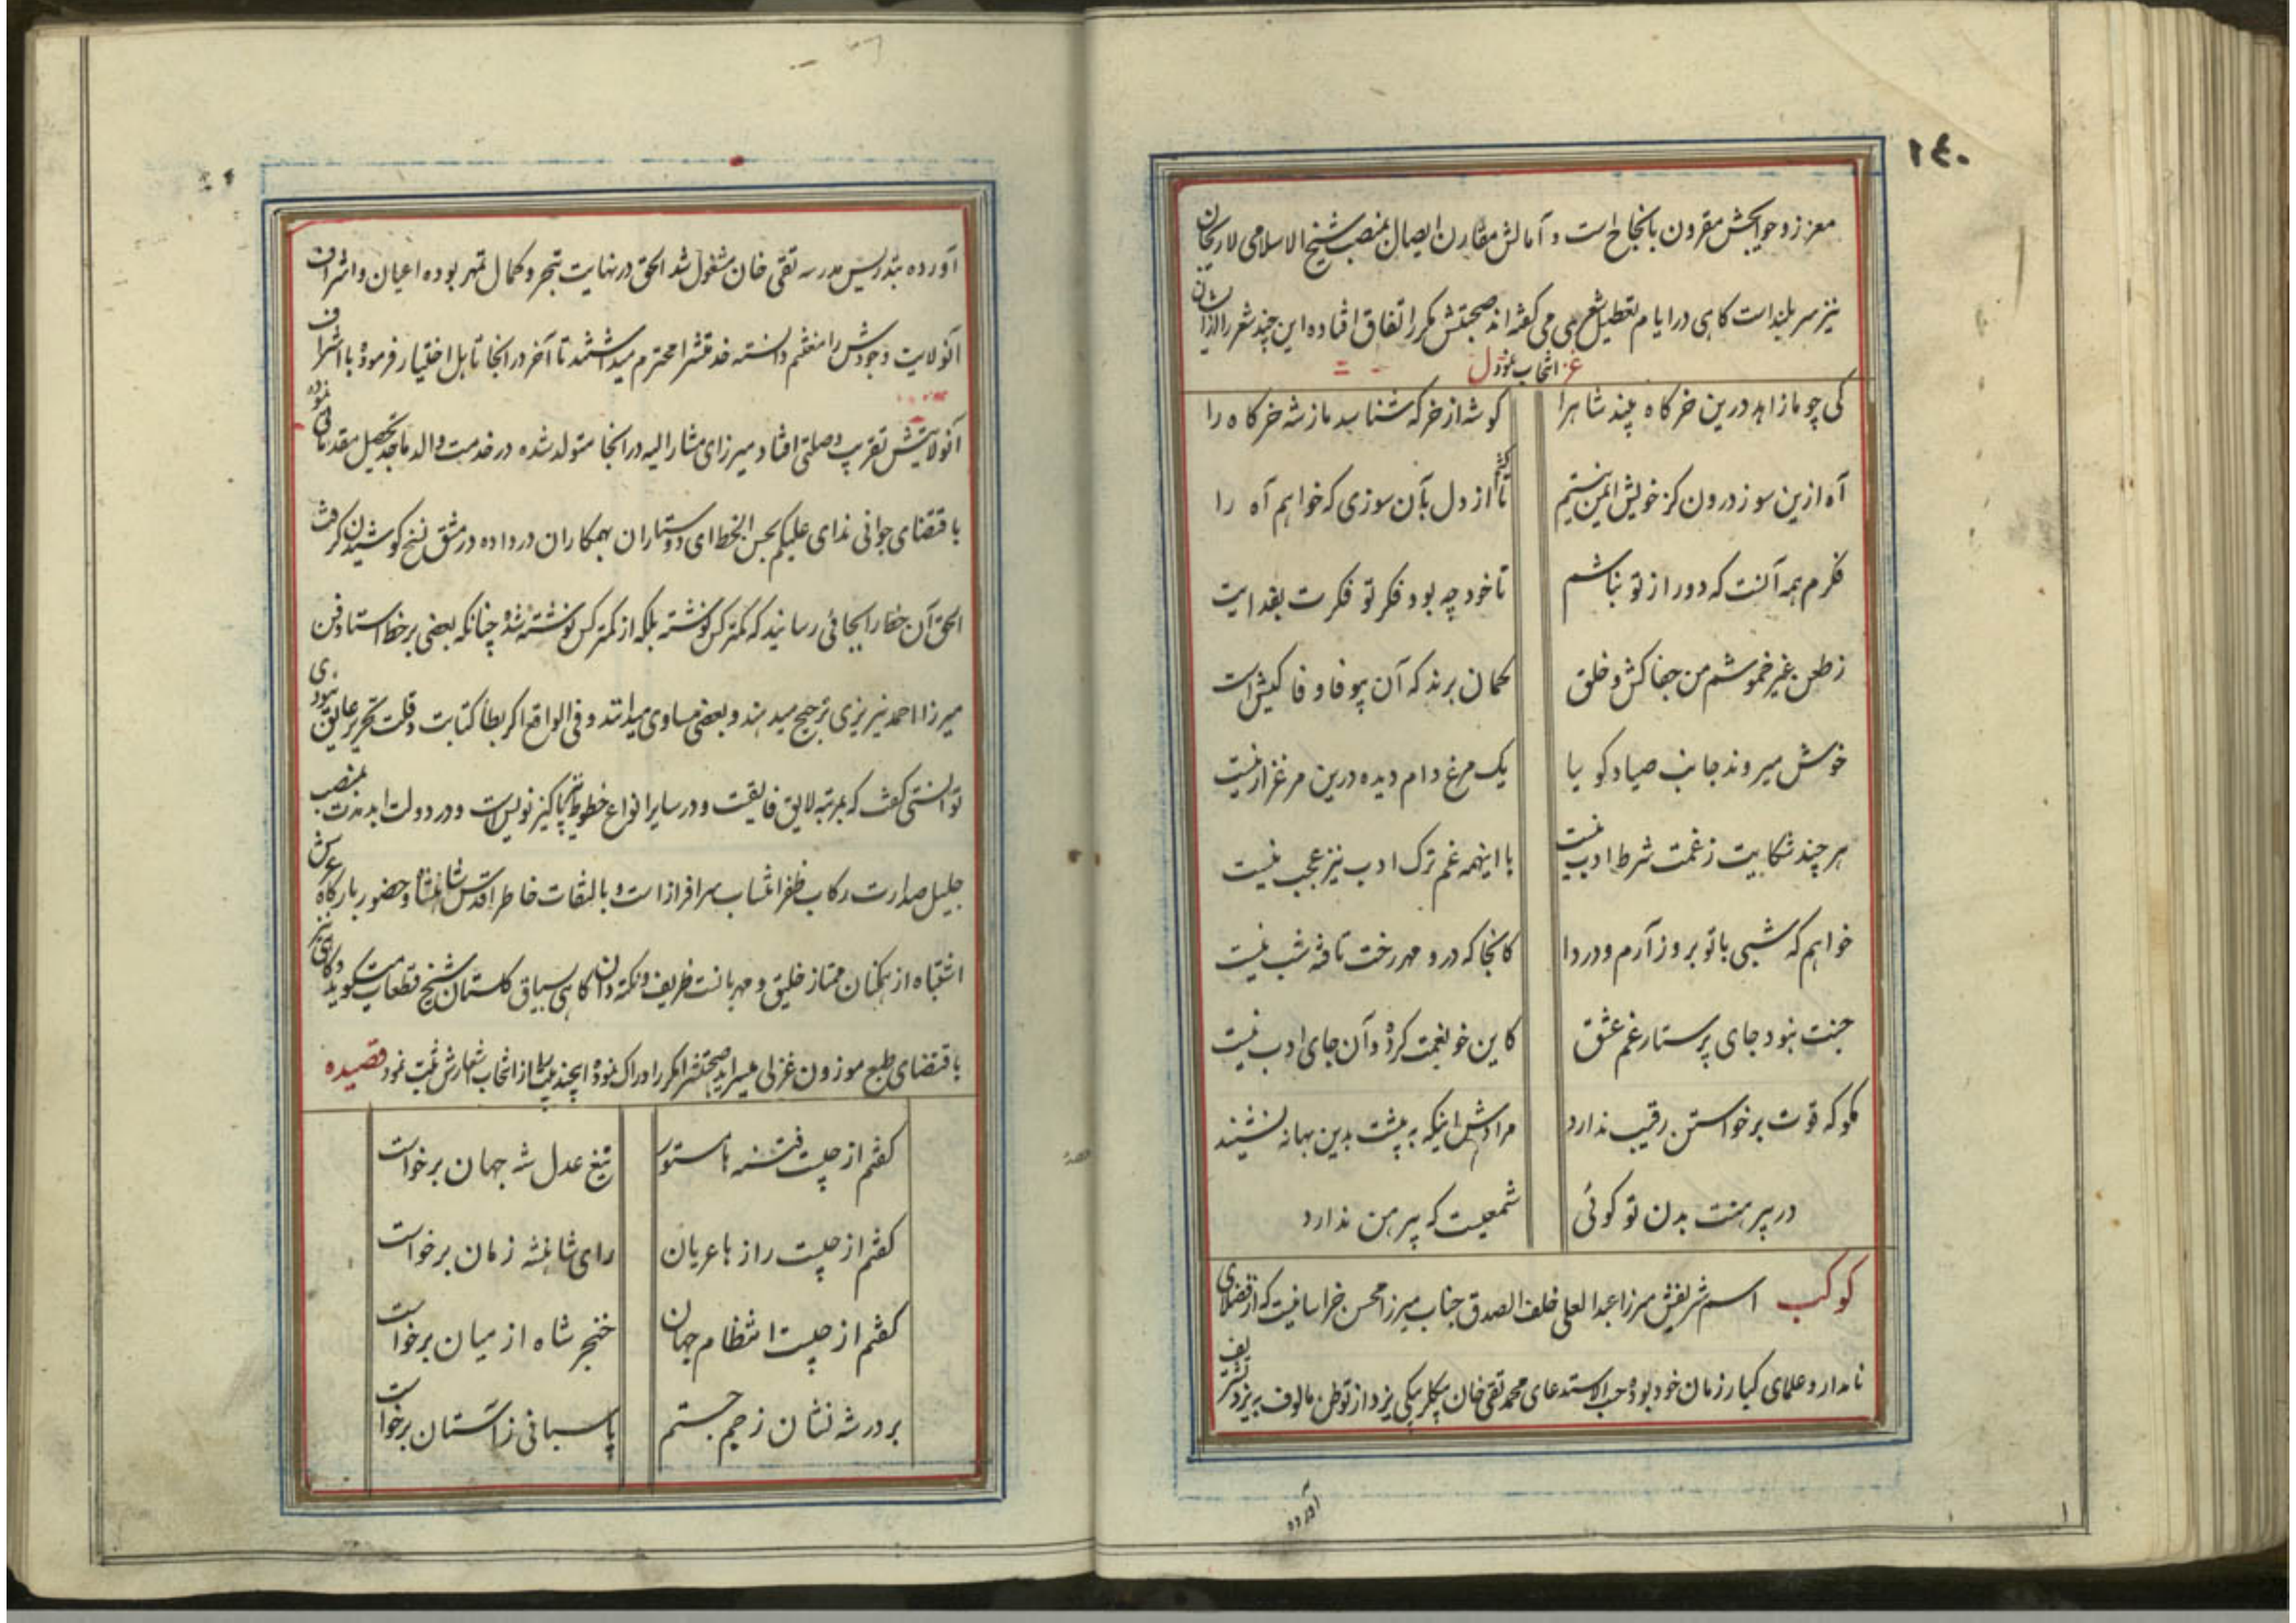 ۱۴۰
معزز و حوایجش مقرون بانجاح است و آمالش مقارن ایصال بمنصب شیخ الاسلامی لاریجان
نیز سربلند است کاهی در ایام تعطیل شعری می کفته اند صحبتش مکرر اتفاق افتاده این چند شعر از ایشان
انتخاب غزل
کی چو ما زاهد درین خرکاه بیند شاه را
کو شه از خرکه شناسد ما ز شه خرکاه را
آه ازین سوز درون کز خویش ایمن نیستم
تا کشم از دل بآن سوزی که خواهم آه را
فکرم همه آنست که دور از تو نباشم
تا خود چه بود فکر تو فکرت بفدایت
ز طعن غیر خموشم من جفاکش و خلق
کمان برند که آن بیوفا وفا کیش است
خوش میروند جانب صیاد کویا
یک مرغ دام دیده درین مرغزار نیست
هر چند شکایت ز غمت شرط ادب نیست
با اینهمه غم ترک ادب نیز عجب نیست
خواهم که شبی با تو بروز آرم و دردا
کانجا که در و مهر رخت تافته شب نیست
جنت نبود جای پرستار غم عشق
کاین خو بغمت کرده و آن جای ادب نیست
مکو که قوت برخواستن رقیب ندارد
مرادش اینکه به پیشت بدین بهانه نشیند
در پیرهنت بدن تو کوئی
شمعیست که پیرهن ندارد
کوکب اسم شریفش میرزا عبدالعلی خلف الصدق جناب میرزا محسن خراسانیست که از فضلای
نامدار و علمای کبار زمان خود بوده حسب الاستدعای محمد تقی خان بیکلربیکی یزد از توطن مالوف بیزد تشریف
آورده
آورده بتدریس مدرسه تقی خان مشغول شد الحق در نهایت تبحر و کمال تمهر بوده اعیان و اشراف
آنولایت وجودش را مغتنم دانسته خدمتشرا محترم میداشتند تا آخر در انجا تاهل اختیار فرموده با اشراف
آنولایتش تقرب وصلتی افتاد میرزای مشارالیه در انجا متولد شده در خدمت والد ماجد تحصیل مقدماتی نموده
باقتضای جوانی ندای علیکم بحسن الخط ای دوستاران بهمکاران در داده در مشق نسخ کوشیدن کرفت
الحق آن خط را بجائی رسانید که کمتر کس نوشته بلکه از کمتر کس نوشته شده چنانکه بعضی بر خط استاد فن
میرزا احمد نیریزی ترجیح میدهند و بعضی مساوی میدانند و فی الواقع اکر بطأ کتابت و قلت تحریر عایق نبودی
توانستی کفت که بمرتبه لایق فایقست و در سایر انواع خطوط نیز پاکیزه نویس است و در دولت ابد مدت بمنصب
جلیل صدارت رکاب ظفر انتساب سرافراز است و بالتفات خاطر اقدس شاهنشاه و حضور بارکاه عرش
اشتباه از همکنان ممتاز خلیق و مهربانست ظریف و نکته دان کاهی بسیاق کلستان شیخ قطعات میکوید و کاهی نیز
باقتضای طبع موزون غزلی میسراید صحبتشرا مکرر ادراک نموده اینچند بیت از انتخاب اشعارش ثبت نمود قصیده
کفتم از چیست فتنه ها مستور
تیغ عدل شه جهان برخواست
کفتم از چیست رازها عریان
رای شاهنشه زمان برخواست
کفتم از چیست انتظام جهان
خنجر شاه از میان برخواست
بر در شه نشان ز جم جستم
پاسبانی ز آستان برخواست